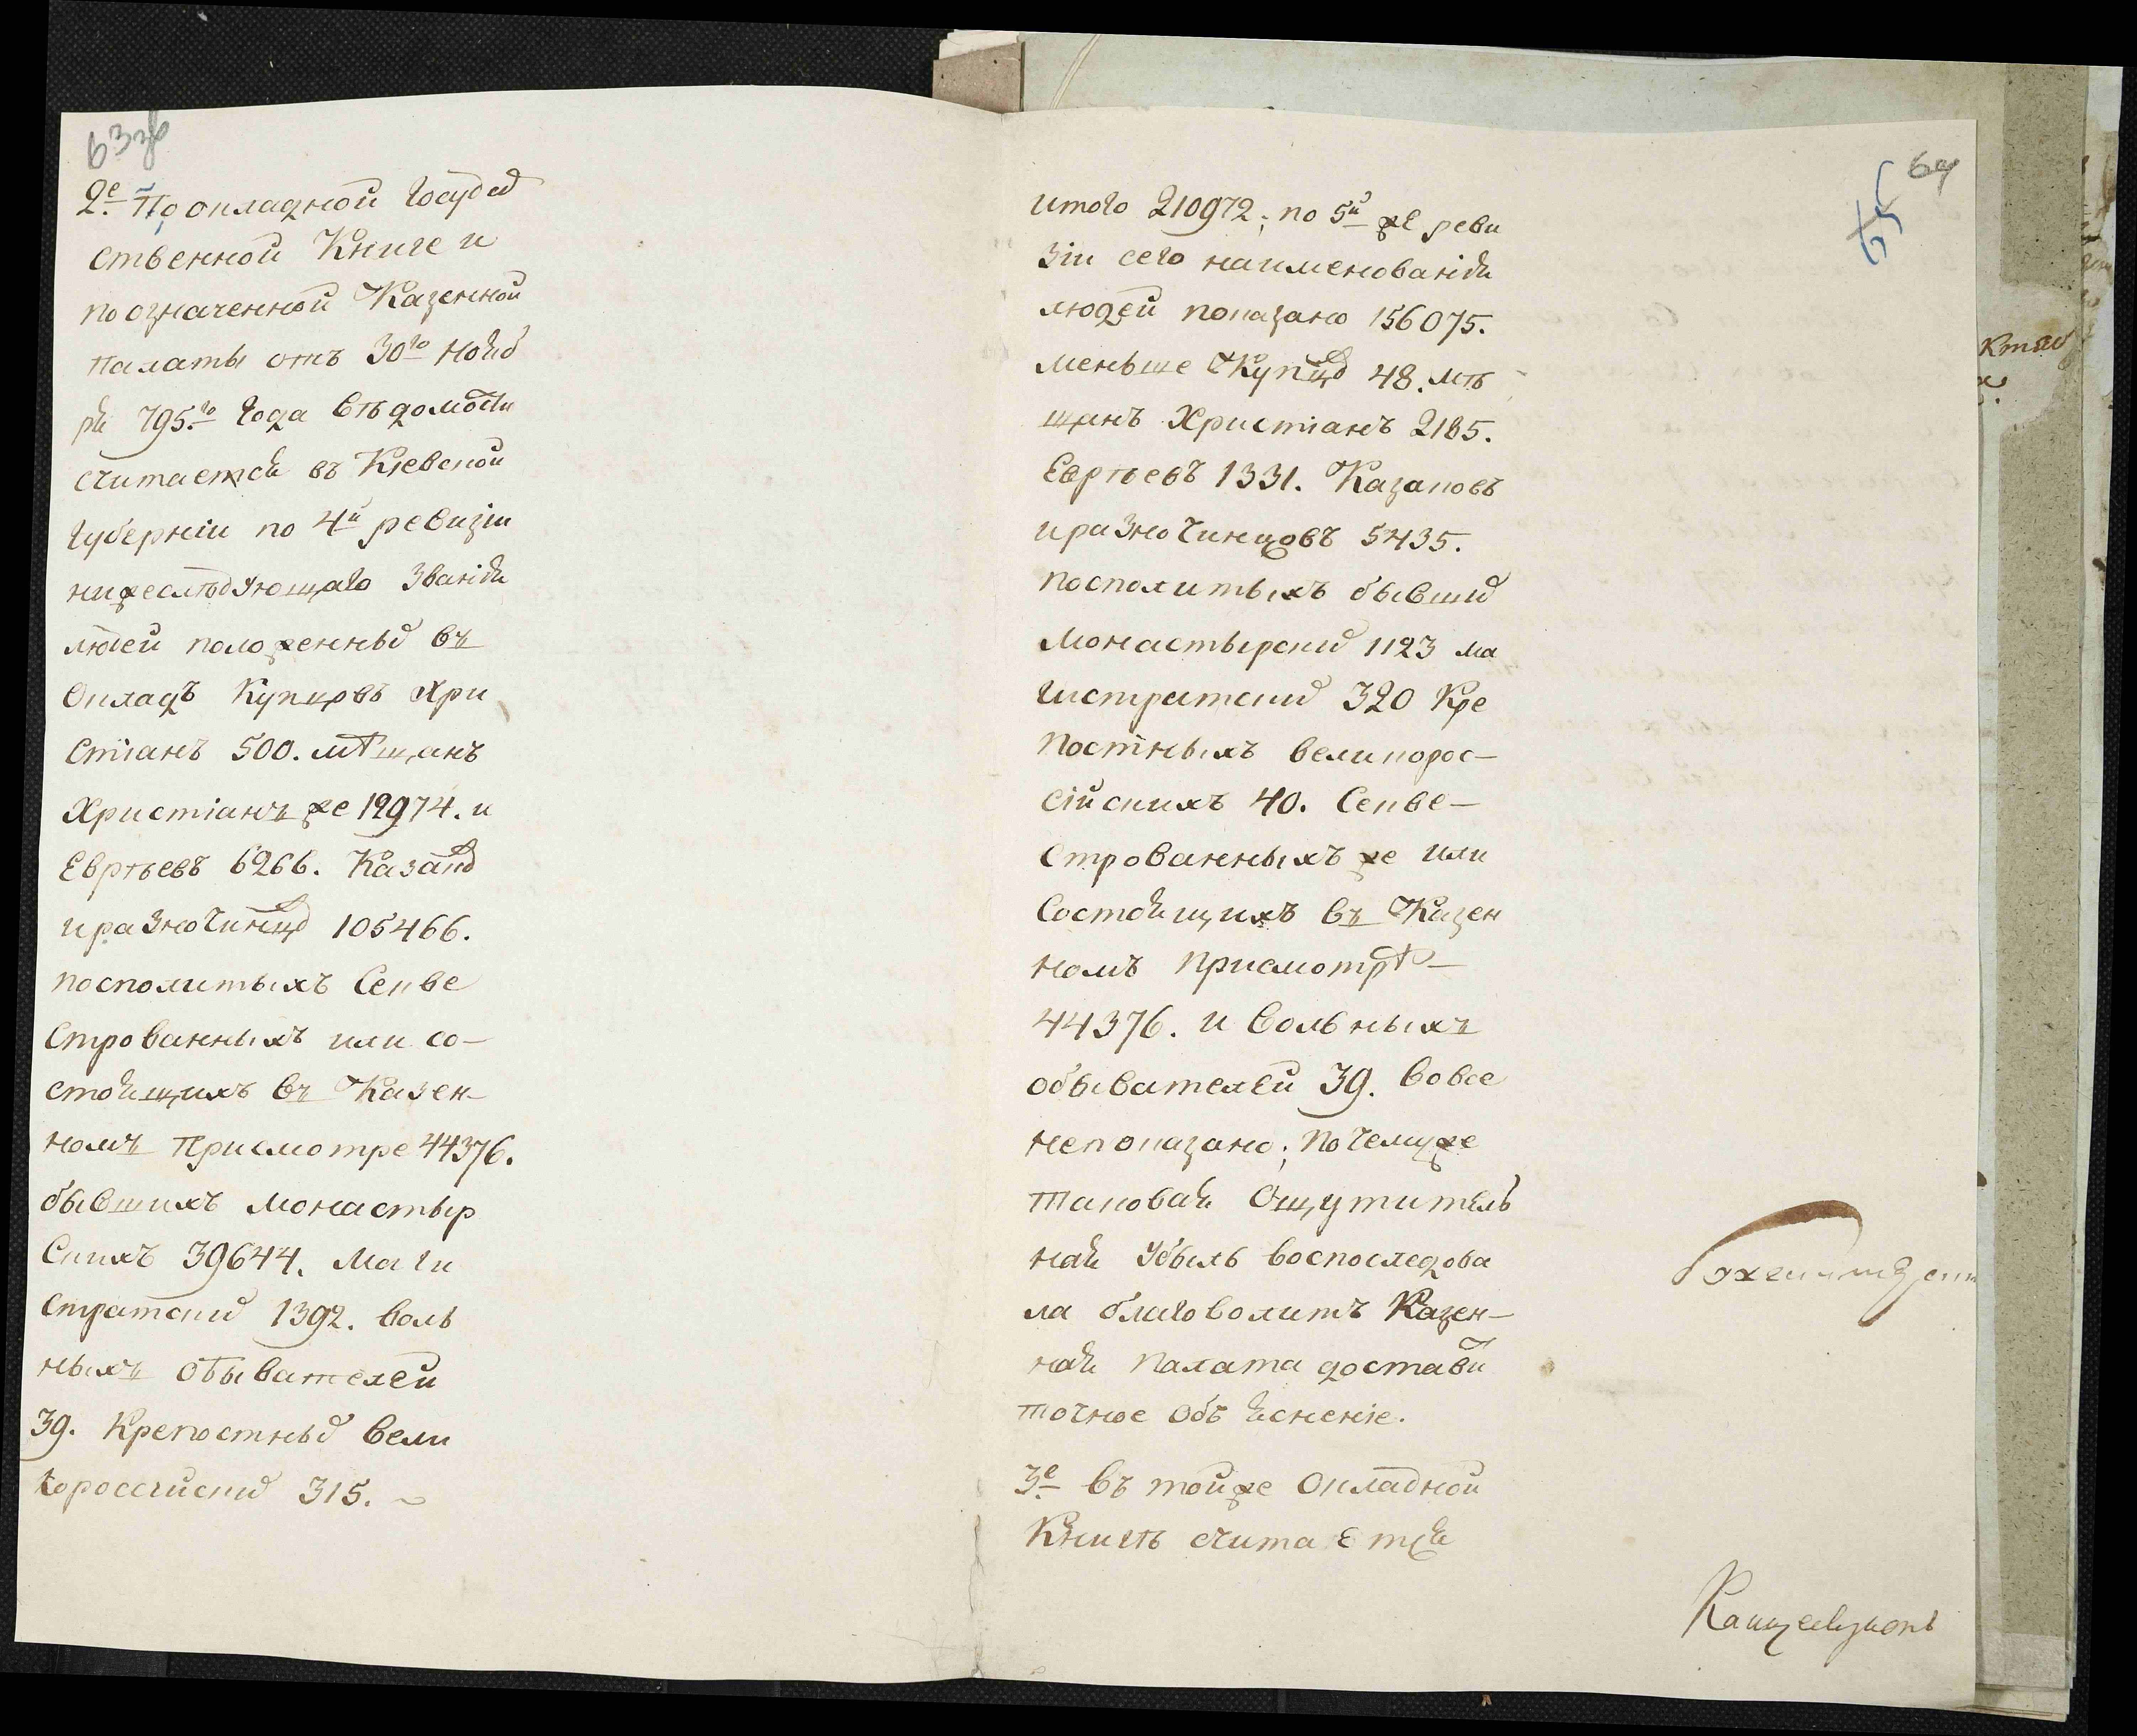 63 зв
2е. По окладной Государ
ственной Книге и
по означенной Казенной
палаты отъ 30го Нояб
ря 795.го года вѣдомости
считается въ Кіевской
губерніи по 4й ревизіи
нижеслѣдующаго званія
людей положенных въ
окладъ Купцовъ Хри
стіанъ 500. мѣщанъ
Христіанъ же 12974. и
Евреевъ 6266. Казаков
и разночинцов 105466.
посполитыхъ секве
строванныхъ или со-
стоящихъ въ Казен-
номъ присмотре 44376.
бывшихъ монастыр
скихъ 39644. маги
стратских 1392. воль
ныхъ обывателей
39. крепостных вели
короссийских 315.
64
65
итого 210972; по 5й же реви
зіи сего наименованія
людей показано 156075.
меньше Купцов 48. мѣ
щанъ Христіанъ 2185.
Евреевъ 1331. Казаковъ
и разночинцовъ 5435.
посполитыхъ бывших
монастырских 1123 ма
гистратских 320 Кре
постныхъ великорос-
сійскихъ 40. секве-
строванныхъ же или
состоящихъ въ Казен
номъ присмотрѣ-
44376. и вольныхъ
обывателей 39. вовсе
непоказано; почемуже
таковая ощутитель
ная убыль воспоследова
ла благоволитъ Казен-
ная палата доставит
точное объясненіе.
3е. въ тойже окладной
Книгѣ считается